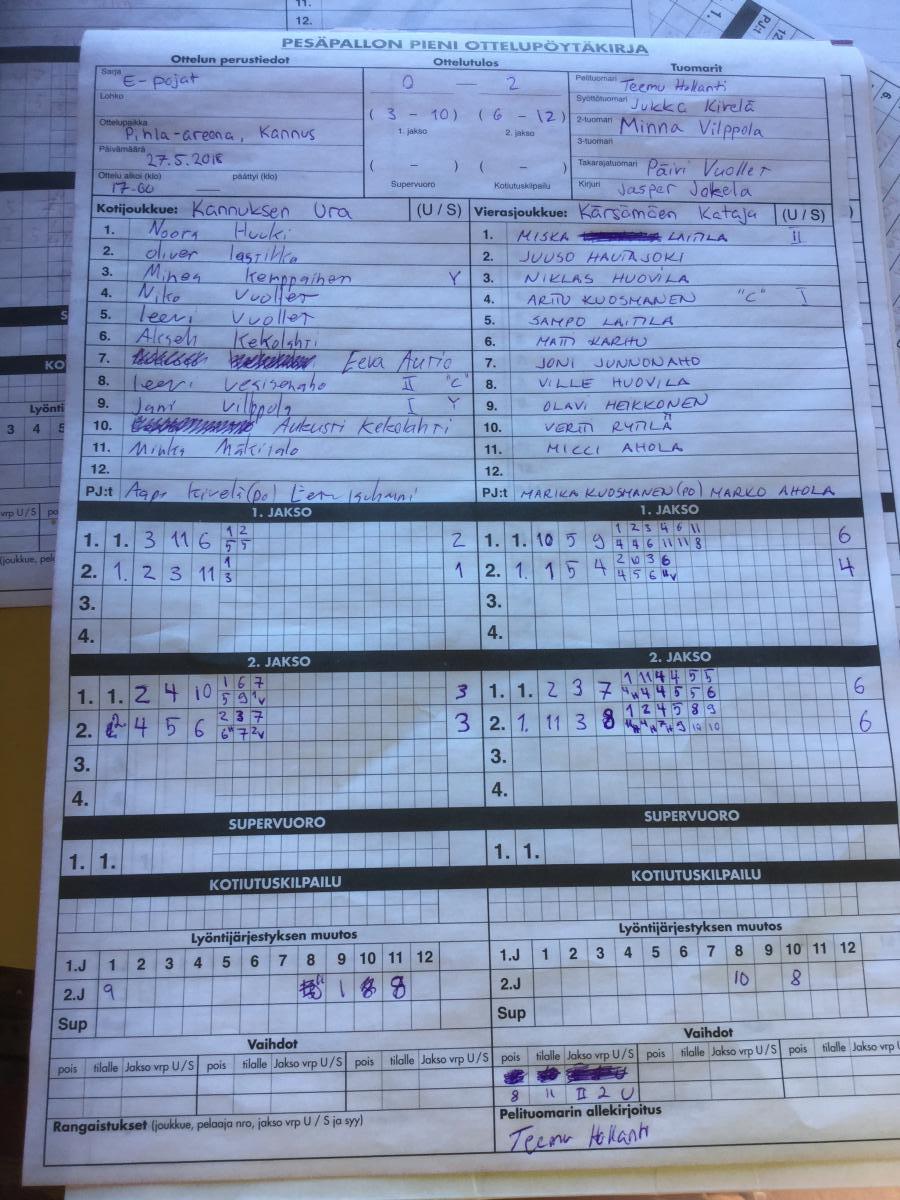 11.
12.
PESÄPALLON PIENI OTTELUPÖYTÄKIRJA
Ottelun perustiedot
Ottelutulos
Tuomarit
Sarja E-pojat
0 — 2
Pelituomari Teemu Hollanti
Lohko
Syöttötuomari Jukka Kivelä
( 3 - 10 ) ( 6 - 12 )
1. jakso 2. jakso
Ottelupaikka Pihla-areena, Kannus
2-tuomari Minna Vilppola
3-tuomari
Päivämäärä 27.5.2018
( - ) ( - )
Takarajatuomari Päivi Vuollet
Ottelu alkoi (klo) 17-00 — päättyi (klo)
Supervuoro Kotiutuskilpailu
Kirjuri Jasper Jokela
Kotijoukkue: Kannuksen Ura (U / S)
Vierasjoukkue: Kärsämäen Kataja (U / S)
1. Noora Huuki
1. MISKA LAITILA II
2. Oliver
2. JUUSO HAUTAJOKI
3. Minea Kemppainen Y
3. NIKLAS HUOVILA
4. Niko Vuollet
4. ARTTU KUOSMANEN "C" I
5. Leevi Vuollet
5. SAMPO LAITILA
6. Kekolahti
6. MATTI KARHU
7. Eeva Aurio
7. JONI JUNNONAHO
8. Leevi II "C"
8. VILLE HUOVILA
9. Jani Vilppola I Y
9. OLAVI HEIKKONEN
10. Aukusti Kekolahti
10. VERTTI RYTILÄ
11. Minka Mäkisalo
11. MICCI AHOLA
12.
12.
PJ:t Kivelä (po)
PJ:t MARIKA KUOSMANEN (PO) MARKO AHOLA
1. JAKSO
1. JAKSO
1. 1. 3 11 6 2
1 2
5 5
1. 1. 10 5 9 6
1 2 3 4 6 11
4 4 6 11 11 8
2. 1. 2 3 11 1
1
3
2. 1. 1 5 4 4
2 10 3 6
4 5 6
3.
3.
4.
4.
2. JAKSO
2. JAKSO
1. 1. 2 4 10 3
1 6 7
5 9 1v
1. 1. 2 3 7 6
1 11 4 4 5 5
4 4 5 5 6
2. 2 4 5 6 3
2 3 7
7 2v
2. 1. 11 3 8 6
1 2 4 5 8 9
9 10 10
3.
3.
4.
4.
SUPERVUORO
SUPERVUORO
1. 1.
1. 1.
KOTIUTUSKILPAILU
KOTIUTUSKILPAILU
Lyöntijärjestyksen muutos
Lyöntijärjestyksen muutos
1.J 1 2 3 4 5 6 7 8 9 10 11 12
1.J 1 2 3 4 5 6 7 8 9 10 11 12
2.J 9 1 8 8
2.J 10 8
Sup
Sup
Vaihdot
Vaihdot
pois tilalle Jakso vrp U / S pois tilalle Jakso vrp U / S pois tilalle Jakso vrp U / S
pois tilalle Jakso vrp U / S pois tilalle Jakso vrp U / S pois tilalle Jakso vrp U
8 11 II 2 U
Rangaistukset (joukkue, pelaaja nro, jakso vrp U / S ja syy)
Pelituomarin allekirjoitus
Teemu Hollanti